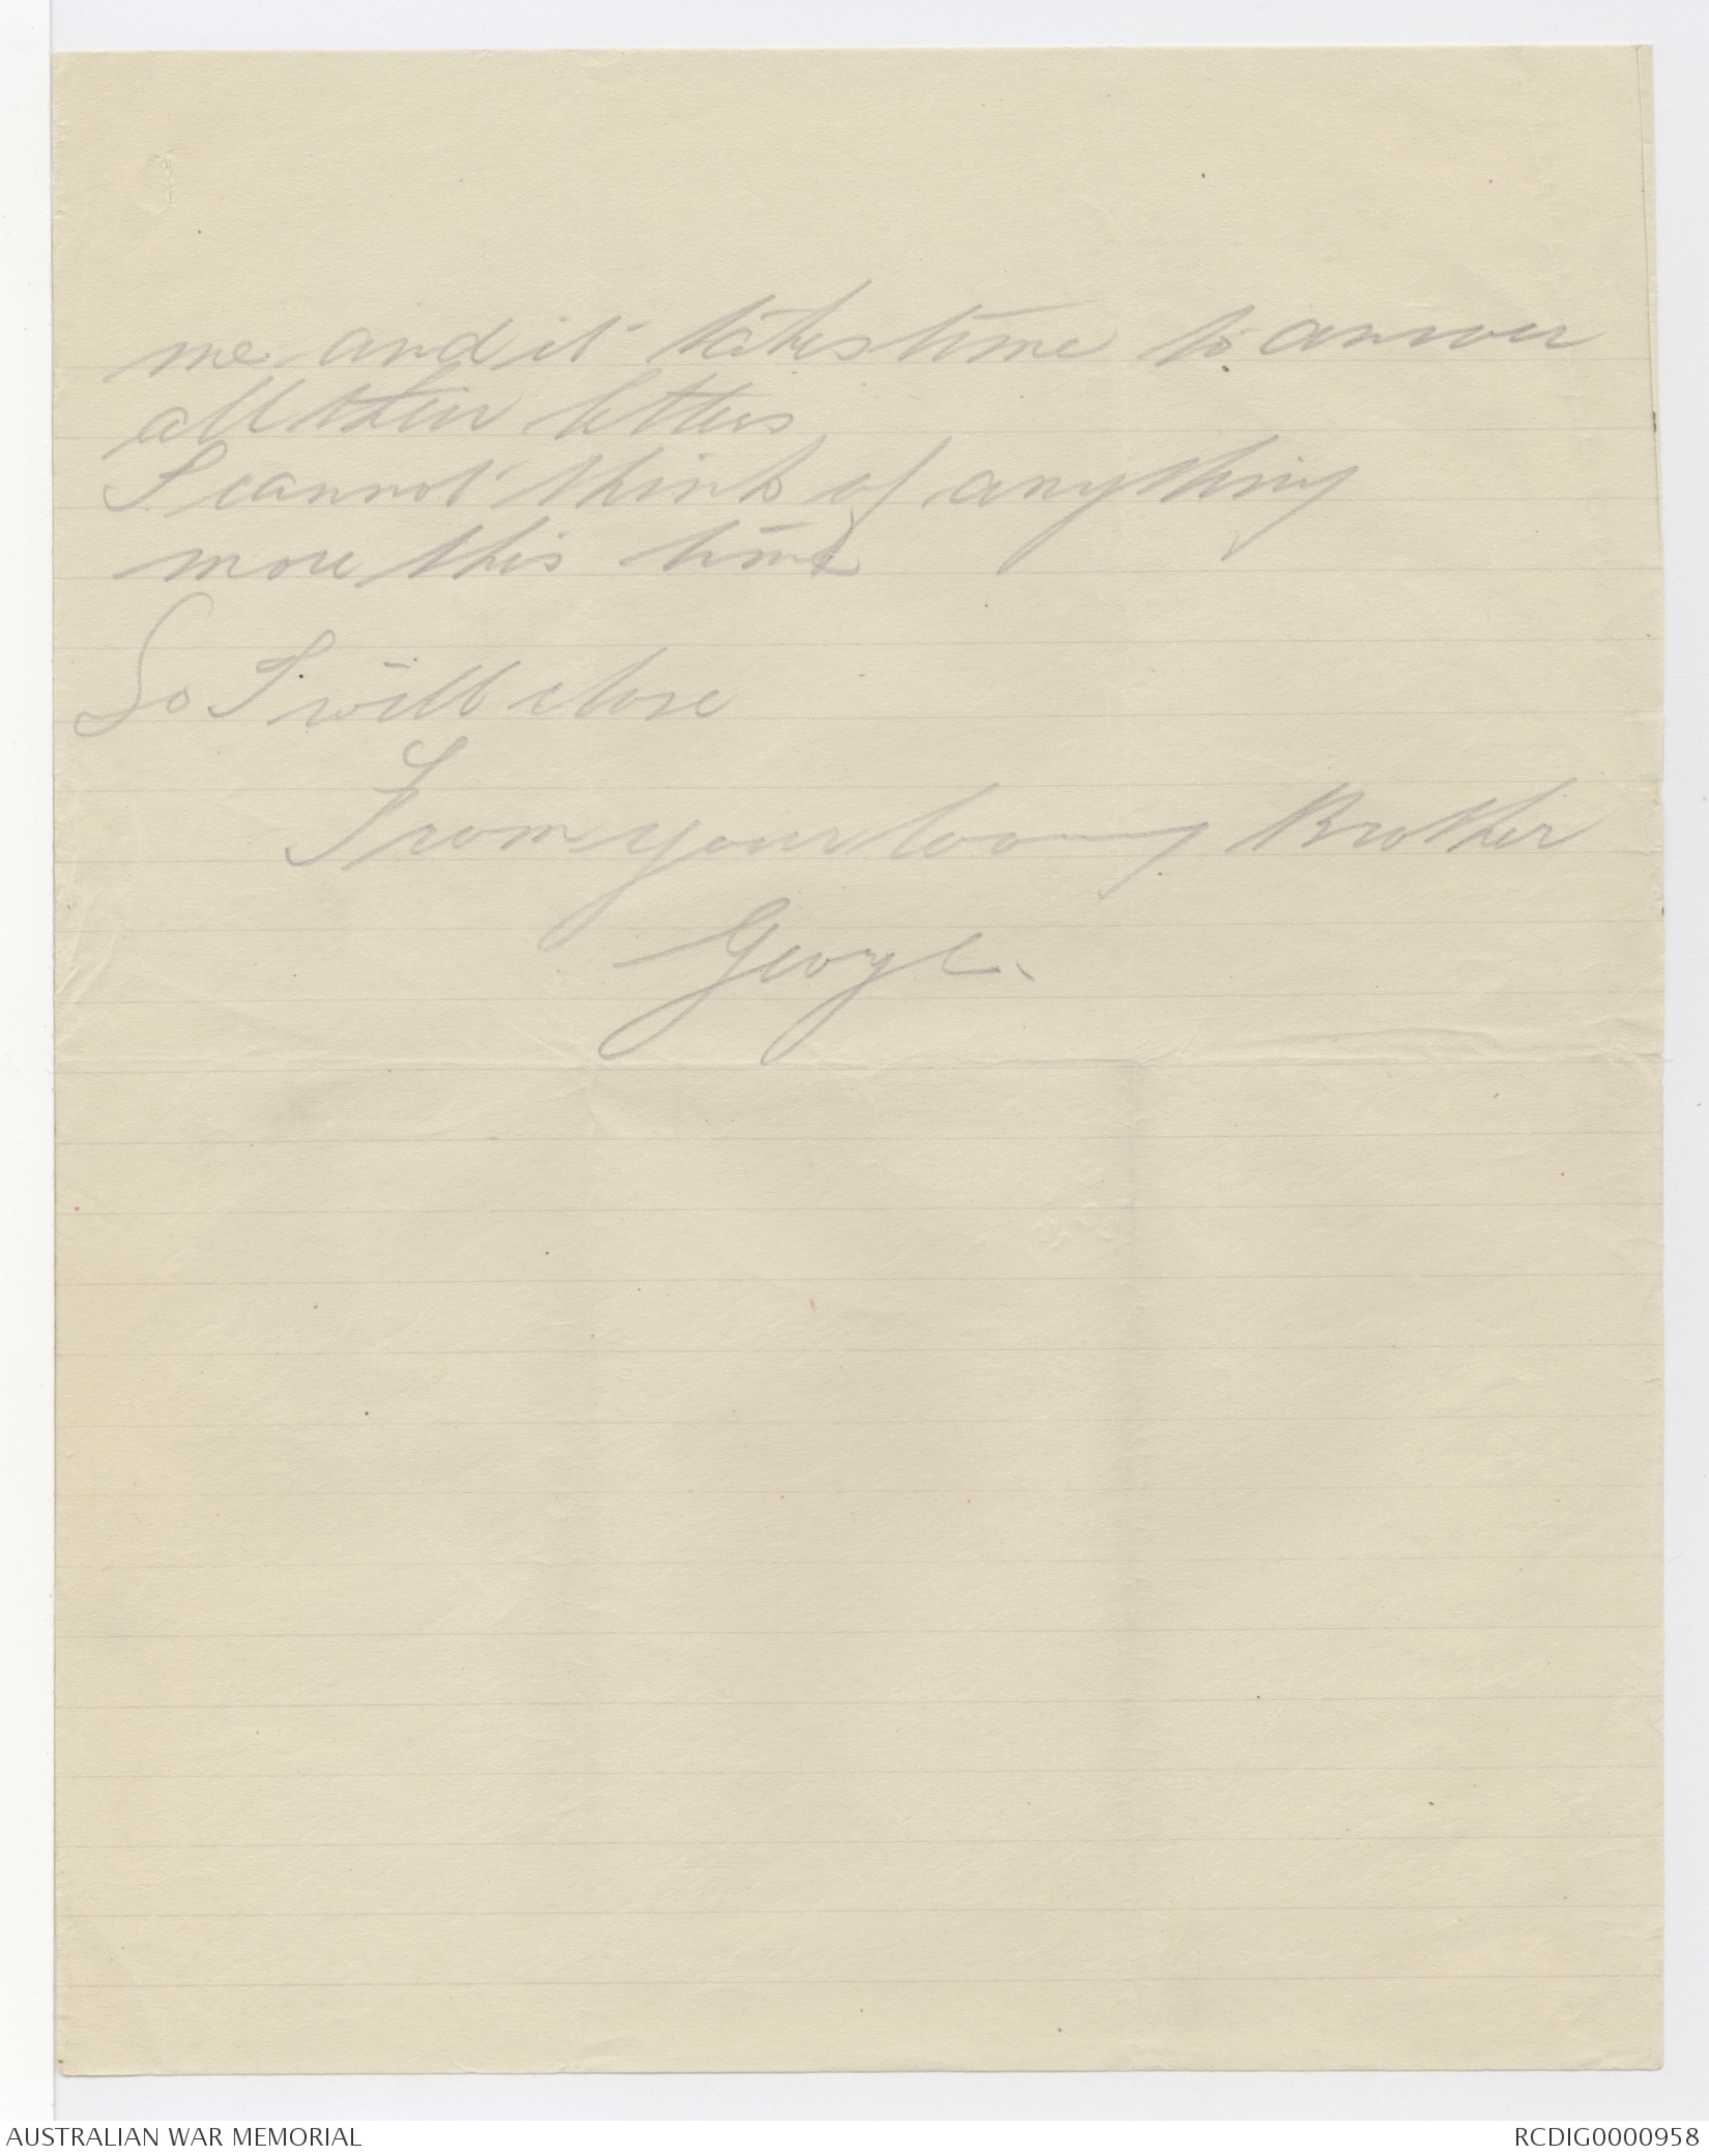 me and it takes time to answer
all their letters
I cannot think of anything
more this time
So I will close
From your loving Brother
George.
AUSTRALIAN WAR MEMORIAL
RCDIG0000958